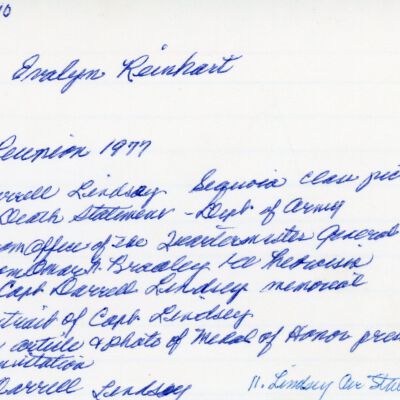 10
Evalyn Reinhart
Reunion 1977
arrell Lindsay Sequoia class pic
Death Statement - Dept of Army
om Office of the Quartermaster General
om Omar N. Bradley
Capt Darrell Lindsey memorial
trait of Capt. Lindsey
article & photo of Medal of Honor pre
ntation
Darrell Lindsay
Lindsey Air Stat